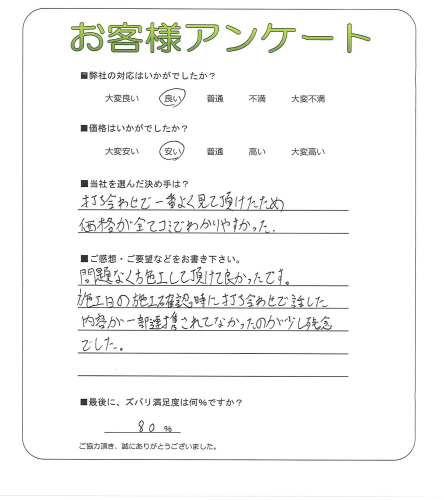 お客様アンケート
■弊社の対応はいかがでしたか？
大変良い 良い 普通 不満 大変不満
■価格はいかがでしたか？
大変安い 安い 普通 高い 大変高い
■当社を選んだ決め手は？
打ち合わせで一番よく見て頂けたため
価格が全てコミでわかりやすかった.
■ご感想・ご要望などをお書き下さい。
問題なく施工して頂けて良かったです。
施工日の施工確認時に打ち合わせで話した
内容が一部連携されてなかったのが少し残念
でした。
■最後に、ズバリ満足度は何%ですか？
80 %
ご協力頂き、誠にありがとうございました。